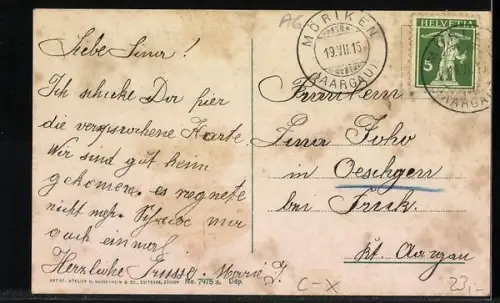 AG
MÖRIKEN
19.VII.15
(AARGAU)
HELVETIA
5
(AARGAU)
Liebe Lina!
Ich schicke Dir hier
die versprochene Karte.
Wir sind gut heim
gekomen. es regnete
nicht meh. Schreibe mir
auch einmal.
Herzliche Grüsse. Marie J.
Fräulein
Lina
in Oeschgen
bei Frick.
Kt. Aargau
No. 7975 a. Dép.
C-X
23,-